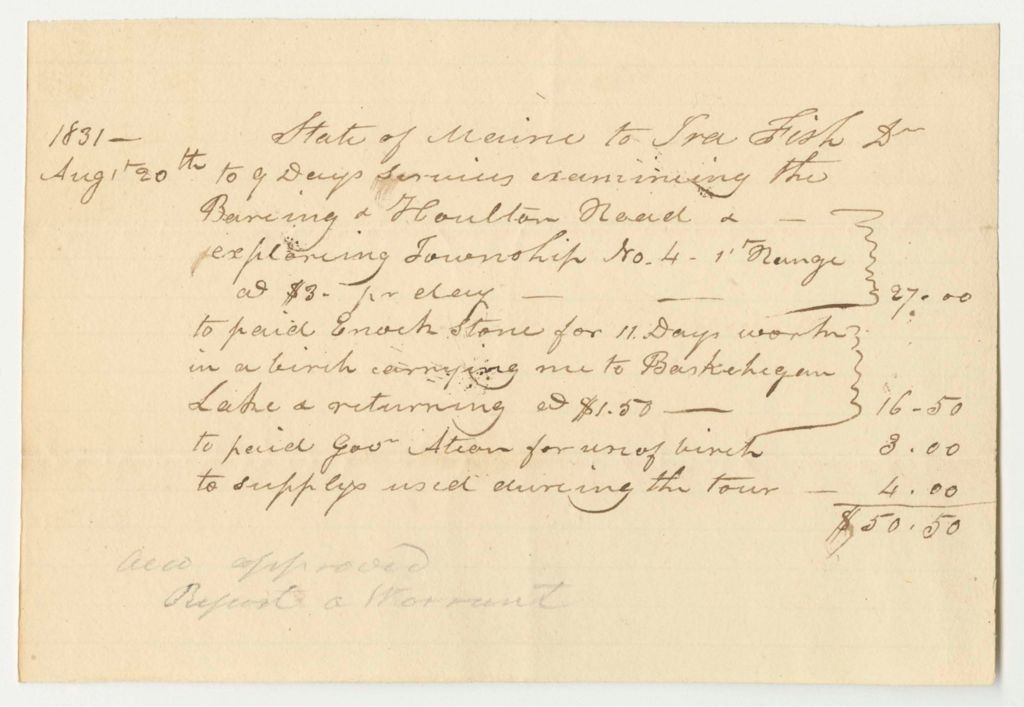 1831 - State of Maine to Ira Fish Dr
Augst 20th to 9 Days servicus examining the
Bareing & Houlton Road & -
exploreing Township No. 4 - 1st Range
at $3 - pr day - - 27.00
to paid Enoch Stone for 11 Days work
in a birch carrying me to Baskehegan
Lake & returning at $1.50 - 16-50
to paid Govr for use of birch 3.00
to supplys used dureing the tour - 4.00
$50.50
approved
Report a Warrant